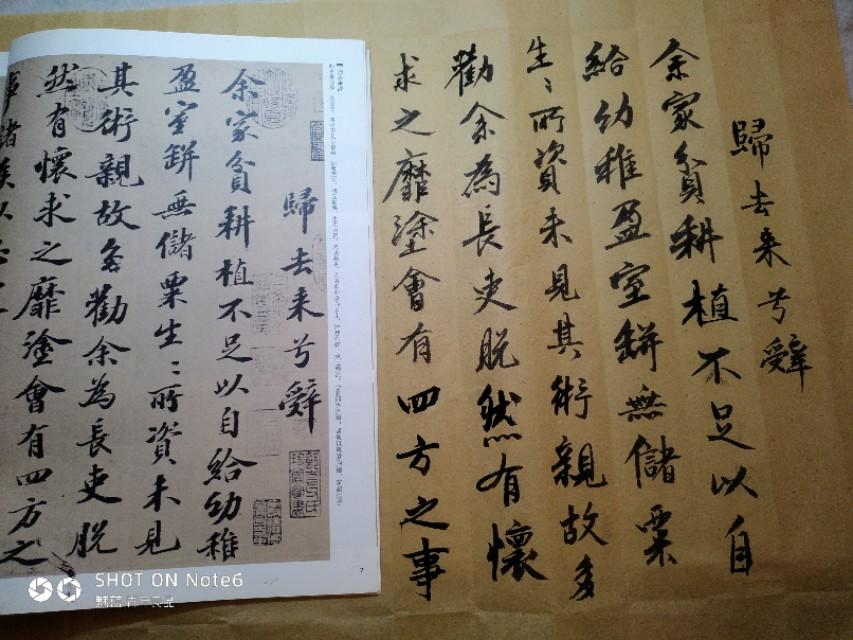 歸去来兮辭
余家貧耕植不足以自
給幼稚盈室缾無儲粟
生〻所資未見其術親故多
勸余為長吏脱然有懷
求之靡塗會有四方之事
歸去来兮辭
余家貧耕植不足以自給幼稚
盈室缾無儲粟生〻所資未見
其術親故多勸余為長吏脱
然有懷求之靡塗會有四方之
事諸侯以
7
SHOT ON Note6